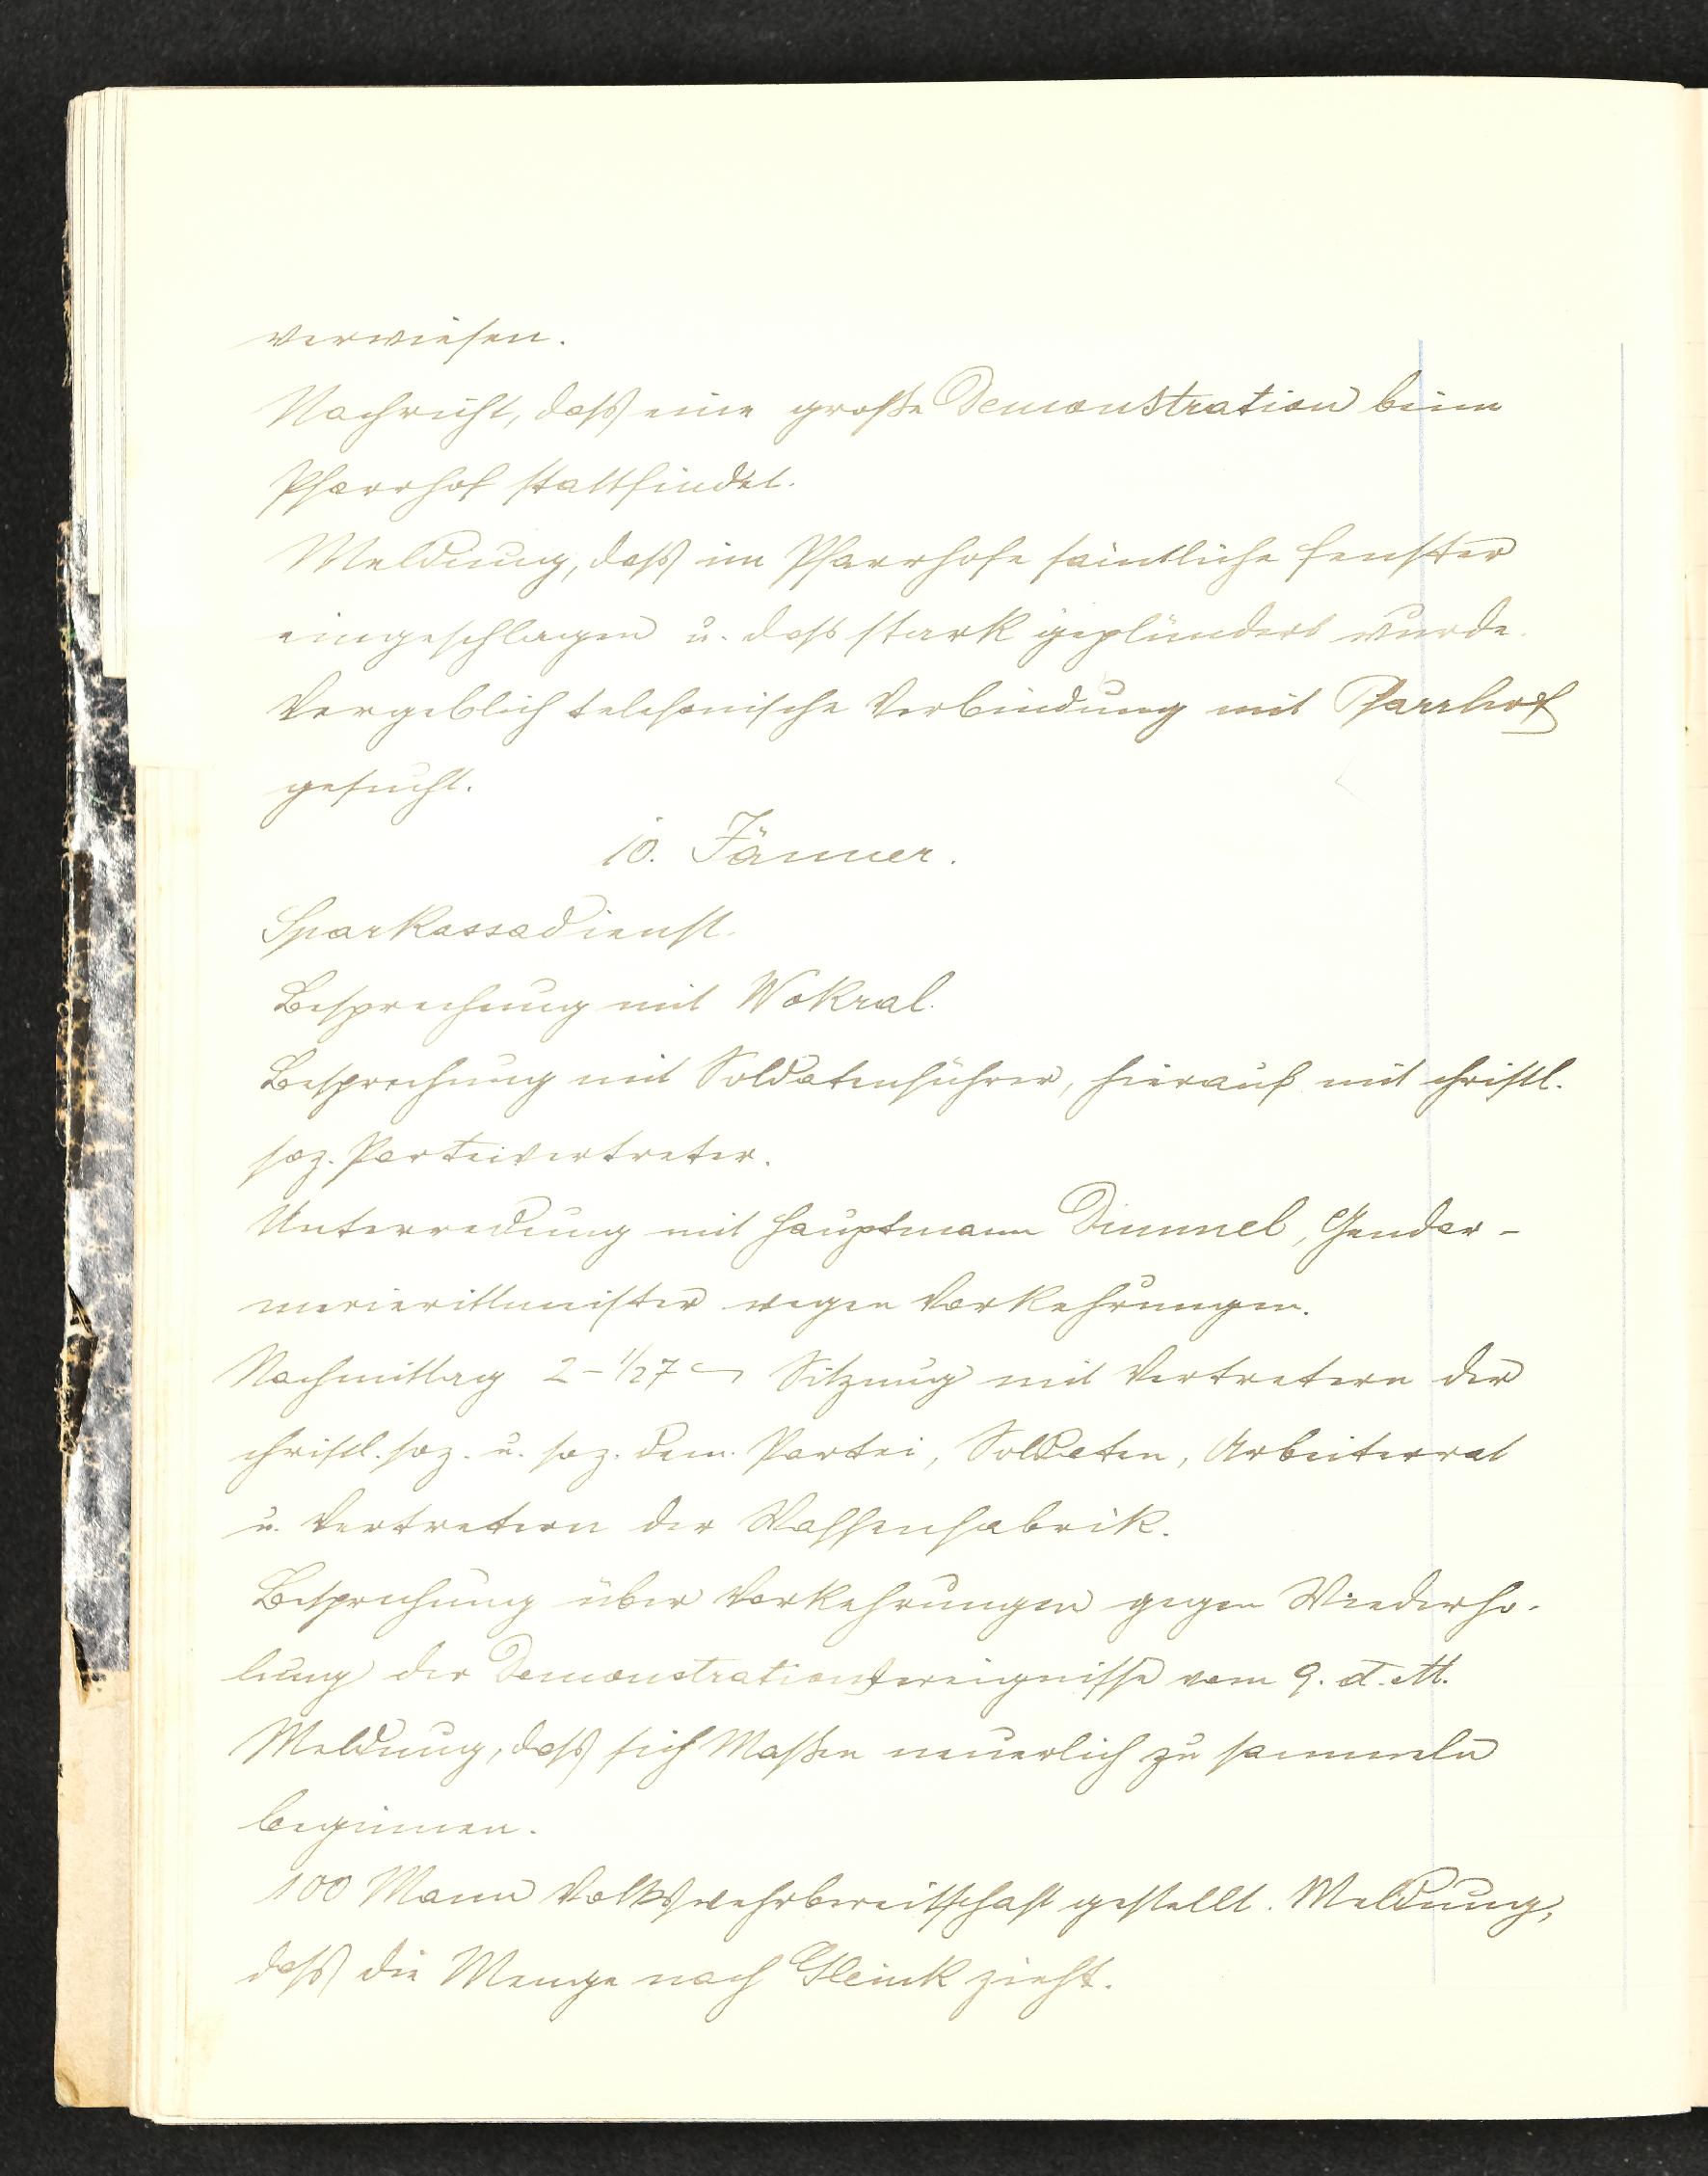 verwiesen.
Nachricht, daß eine große Demonstration beim
Pfarrhof stattfindet.
Meldung, daß im Pfarrhofe sämtliche Fenster
eingeschlagen u. daß stark geplündert wurde.
Vergeblich telefonische Verbindung mit Pfarrhof
gesucht.
10. Jänner.
Sparkassadienst.
Besprechung mit Wokral.
Besprechung mit Soldatenführer, hierauf mit christl.
soz. Parteivertreter.
Unterredung mit Hauptmann Dimmel, Gendar-
merierittmeister wegen Vorkehrungen.
Nachmittag 2-1/27 Sitzung mit Vertretern der
christl. soz. u. soz. dem. Partei, Soldaten, Arbeiterrat
u. Vertretern der Waffenfabrik.
Besprechung über Vorkehrungen gegen Wiederho-
lung der Demonstrationsereignisse vom 9. d. M.
Meldung, daß sich Maßen neuerlich zu sammeln
beginnen.
100 Mann Volkswehrbereitschaft gestellt. Meldung,
daß die Menge nach Gleink zieht.